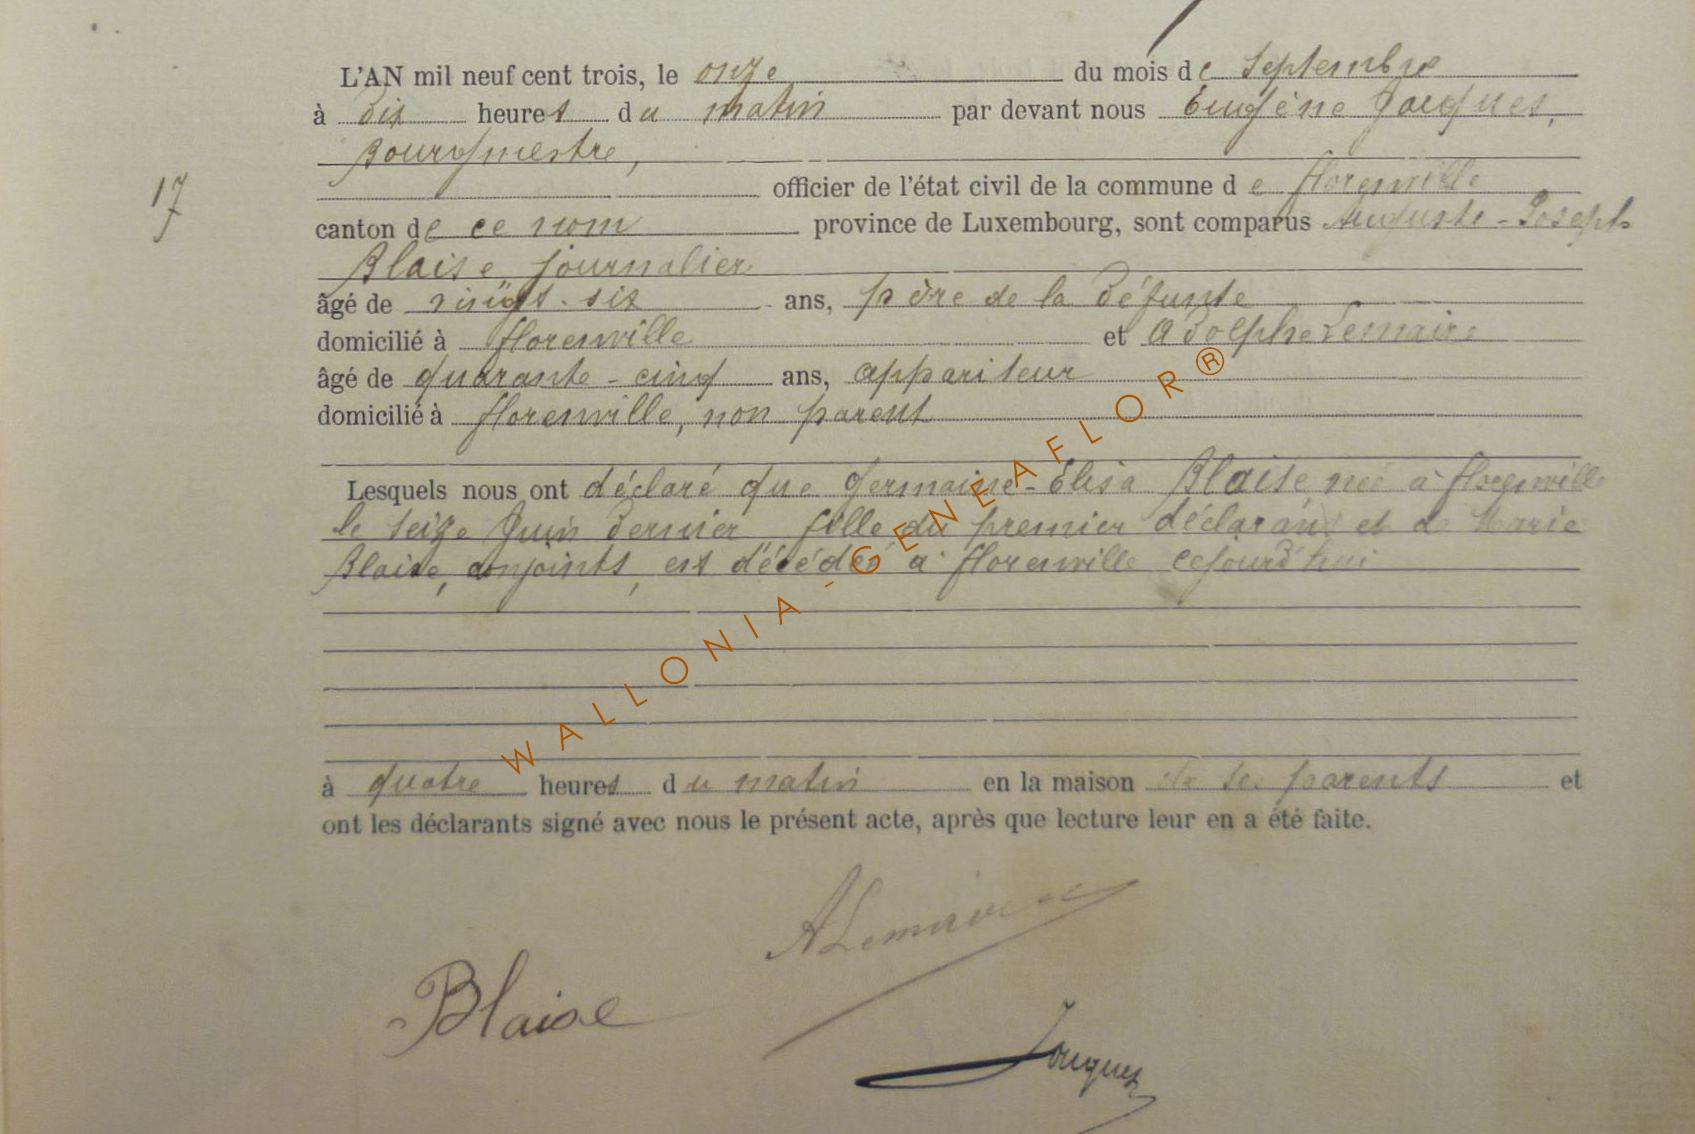 L'AN mil neuf cent trois, le onze du mois de Septembre
à dix heures du matin par devant nous Eugène Jacques,
Bourgmestre,
17
officier de l'état civil de la commune de florenville
canton de ce nom province de Luxembourg, sont comparus Auguste-Joseph
Blaise journalier
âgé de vingt-six ans, père de la défunte
domicilié à florenville et Adolphe Lemaire
âgé de quarante-cinq ans, appariteur
domicilié à florenville, non parent
Lesquels nous ont déclaré que Germaine-Élisa Blaise née à florenville
le seize Juin dernier fille du premier déclarant et de Marie
Blaise, conjoints, est décédée à florenville cejourd'hui
à quatre heures du matin en la maison de ses parents et
ont les déclarants signé avec nous le présent acte, après que lecture leur en a été faite.
ALemaire
Blaise
Jacques
WALLONIA - GENEAFLOR®